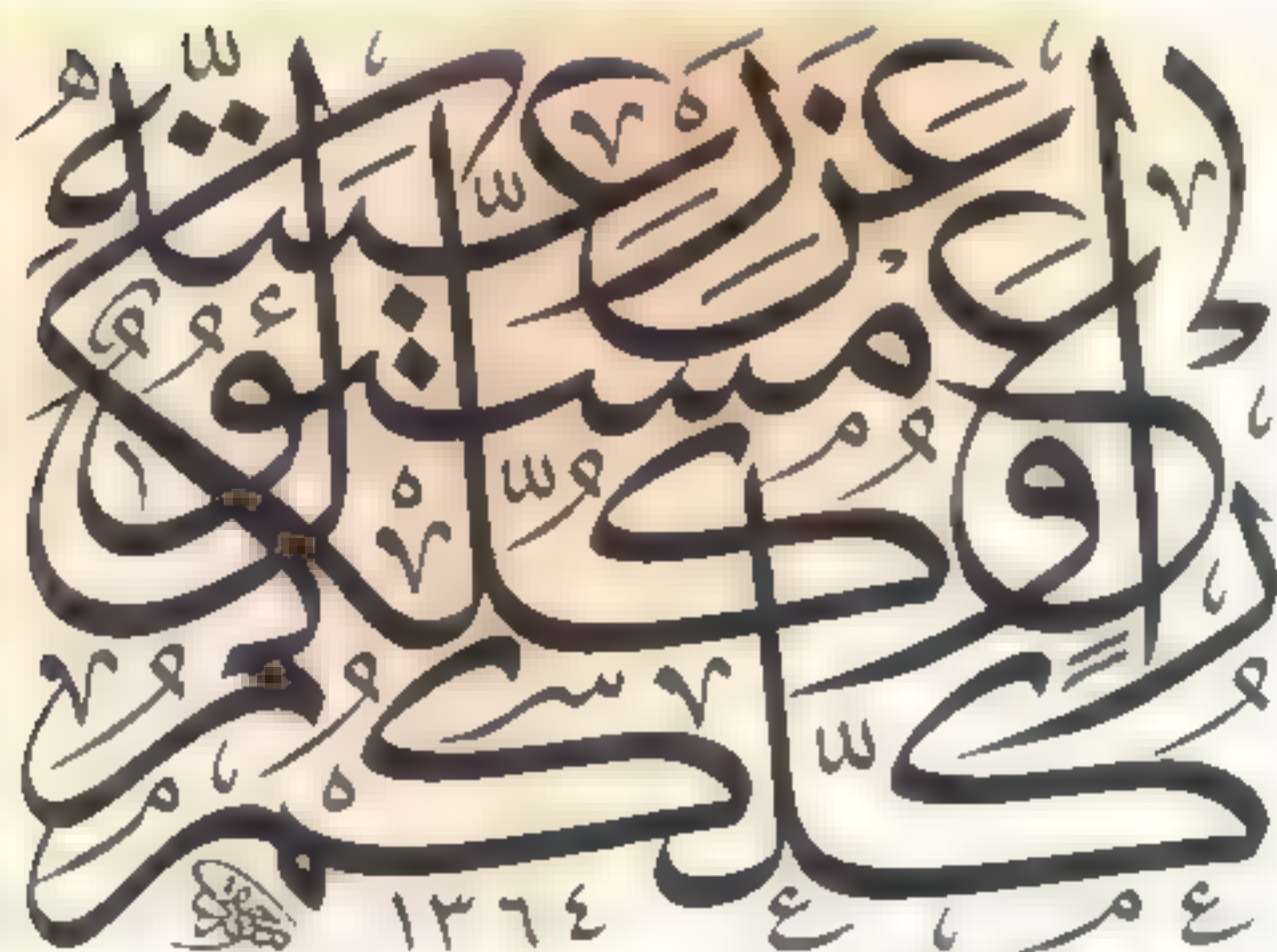 كلكم راع وكلكم
مسئول
عن رعيته
١٣٦٤